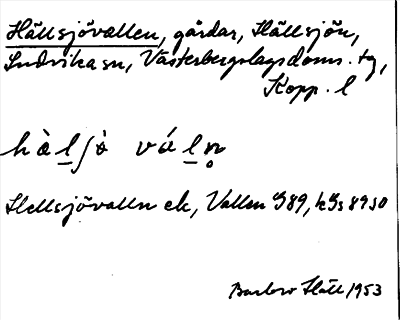 Hällsjövallen, gårdar, Hällsjön,
Ludvika sn, Västerbergslags doms. tg,
Kopp. l
hàlʃò váln̥
Hellsjövalln ek, Vallen G89, hGs 8950
Barbro Häll 1953